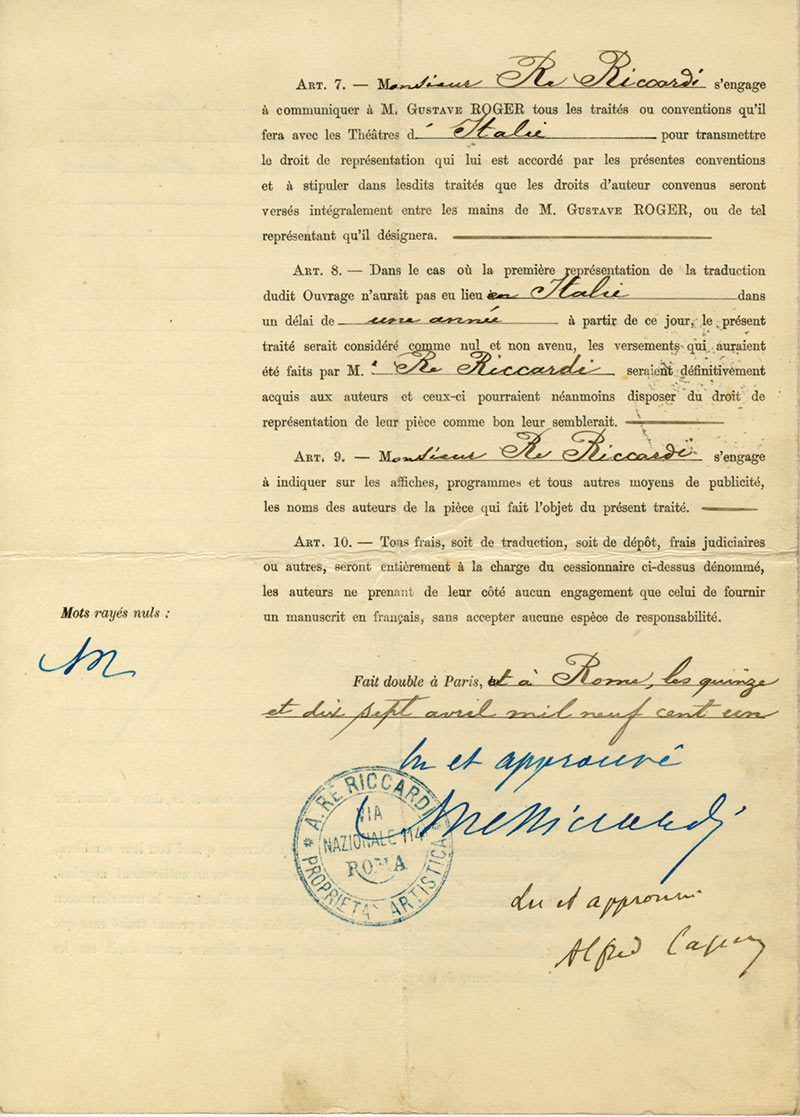 ART. 7. — Monsieur Re Riccardi s'engage
à communiquer à M. GUSTAVE ROGER tous les traités ou conventions qu'il
fera avec les Théâtres d' Italie pour transmettre
le droit de représentation qui lui est accordé par les présentes conventions
et à stipuler dans lesdits traités que les droits d'auteur convenus seront
versés intégralement entre les mains de M. GUSTAVE ROGER, ou de tel
représentant qu'il désignera.
ART. 8. — Dans le cas où la première représentation de la traduction
dudit Ouvrage n'aurait pas eu lieu en Italie dans
un délai de une année à partir de ce jour, le présent
traité serait considéré comme nul et non avenu, les versements qui auraient
été faits par M. Re Riccardi seraient définitivement
acquis aux auteurs et ceux-ci pourraient néanmoins disposer du droit de
représentation de leur pièce comme bon leur semblerait.
ART. 9. — Monsieur Re Riccardi s'engage
à indiquer sur les affiches, programmes et tous autres moyens de publicité,
les noms des auteurs de la pièce qui fait l'objet du présent traité.
ART. 10. — Tous frais, soit de traduction, soit de dépôt, frais judiciaires
ou autres, seront entièrement à la charge du cessionnaire ci-dessus dénommé,
les auteurs ne prenant de leur côté aucun engagement que celui de fournir
un manuscrit en français, sans accepter aucune espèce de responsabilité.
Mots rayés nuls :
Fait double à Paris, et à Rome, les quinze
et dix sept avril mil neuf cent un
Lu et approuvé
A. RE RICCARDI
VIA
NAZIONALE 114
ROMA
PROPRIETA' ARTISTICA
Lu et approuvé
Alfred